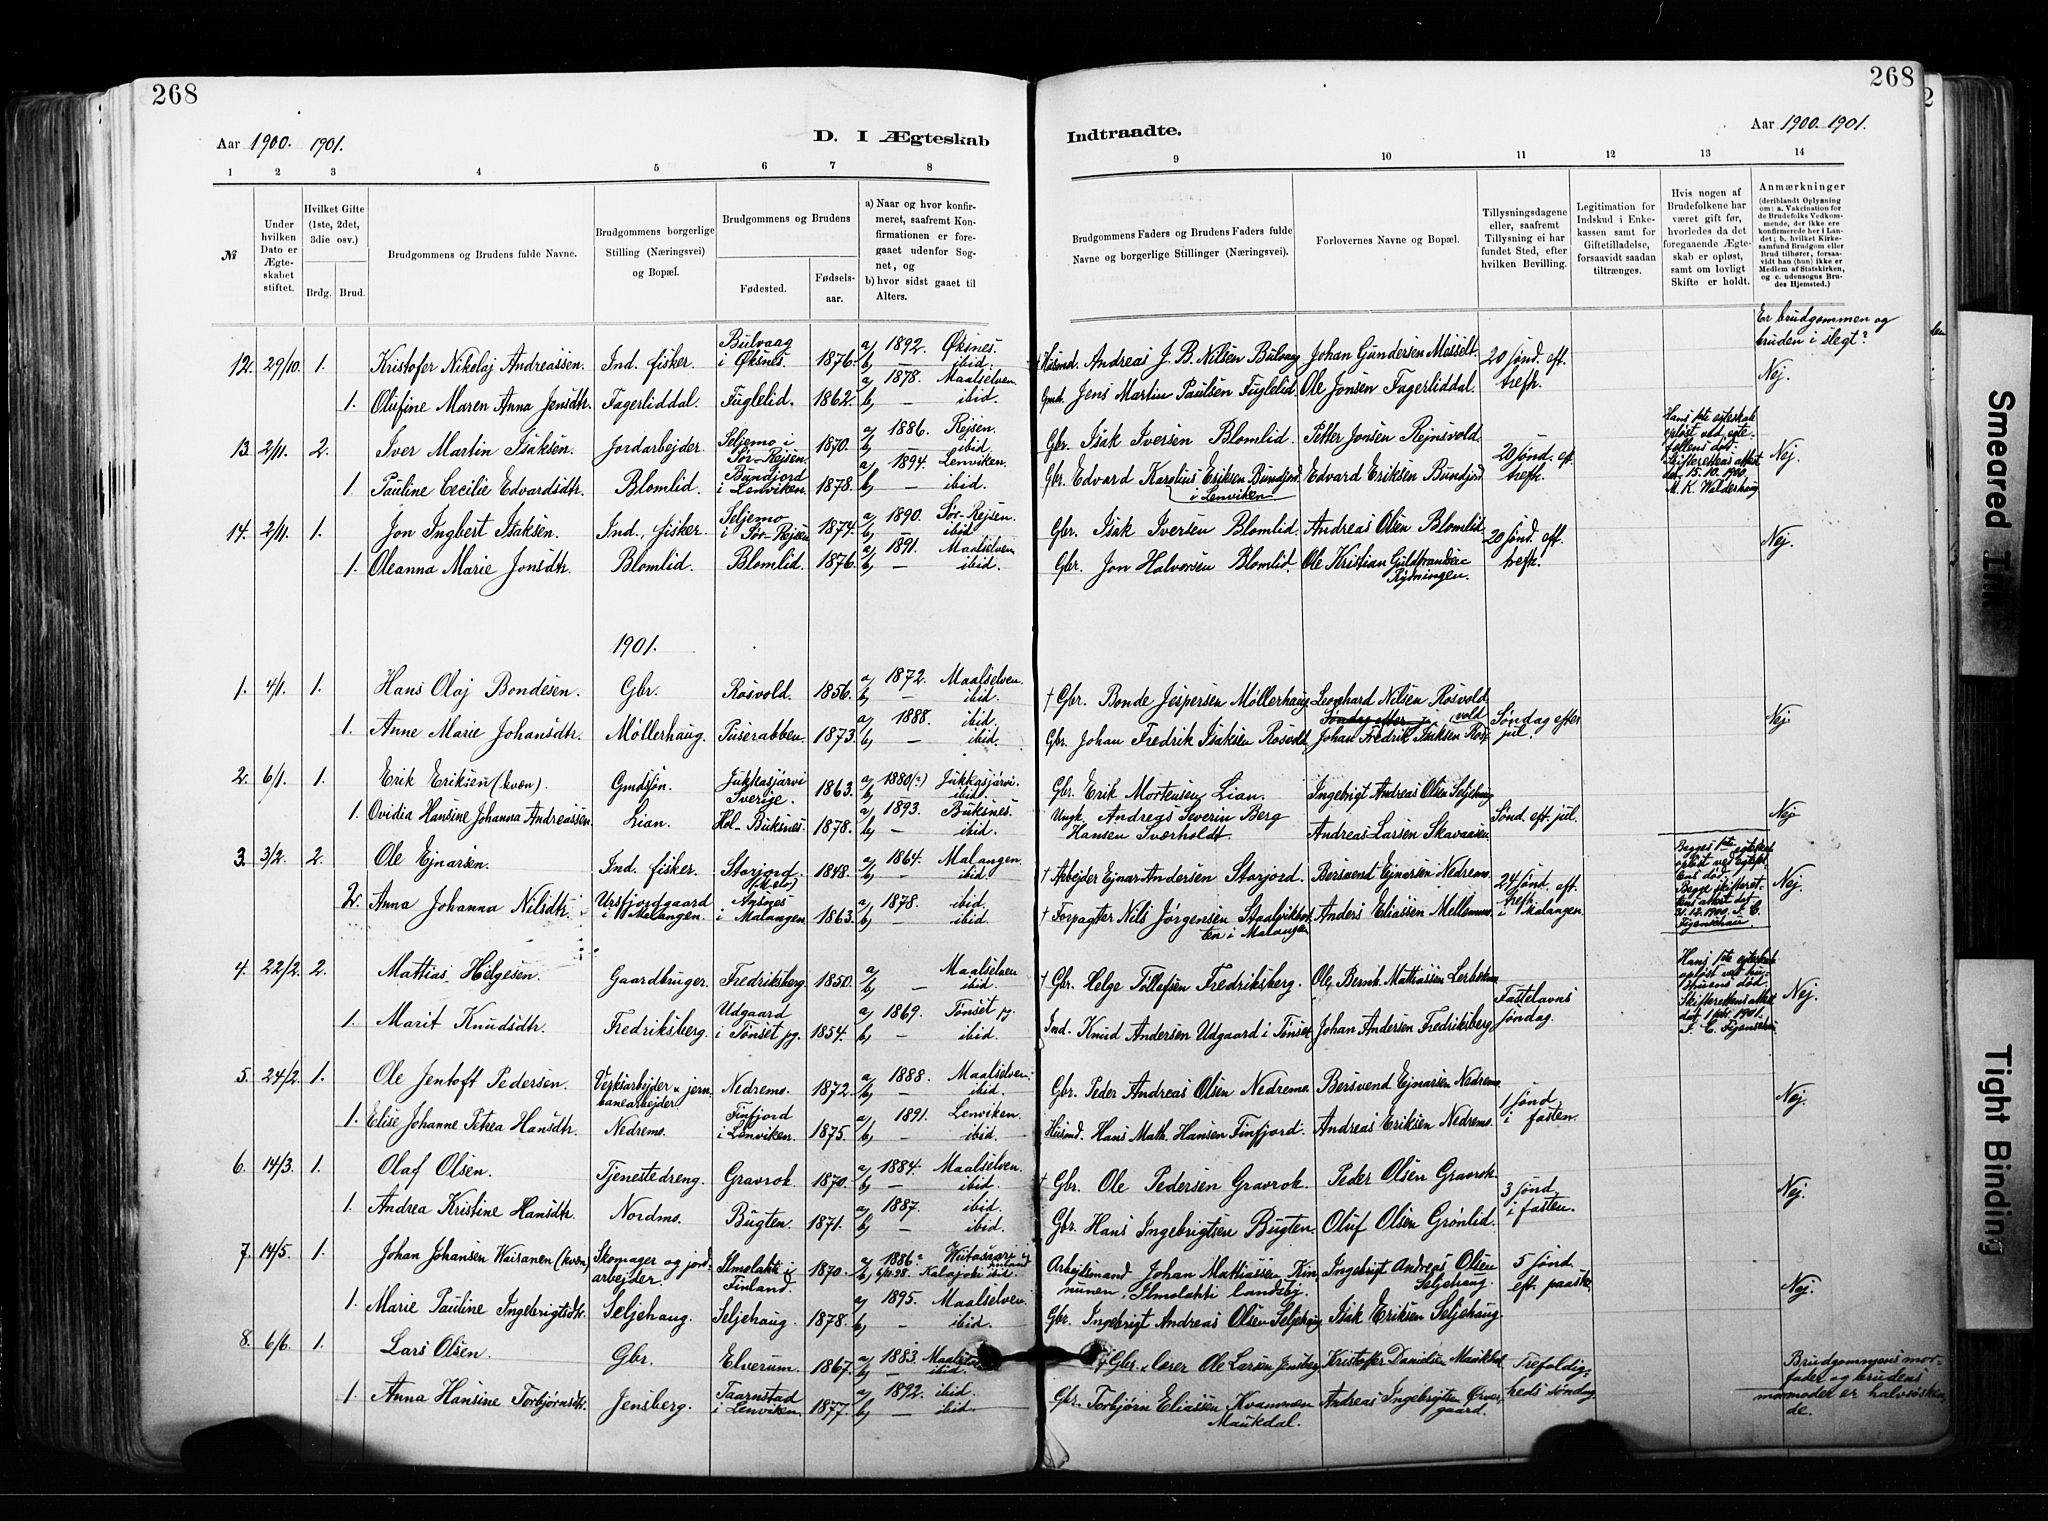 268
268
Aar 1900. 1901.
D. I Ægteskab
Indtraadte.
Aar 1900. 1901.
1 2 3 4 5 6 7 8
9 10 11 12 13 14
№
Under hvilken Dato er Ægteskabet stiftet.
Hvilket Gifte (1ste, 2det, 3die osv.)
Brdg. Brud.
Brudgommens og Brudens fulde Navne.
Brudgommens borgerlige Stilling (Næringsvei) og Bopæl.
Brudgommens og Brudens
Fødested.
Fødselsaar.
a) Naar og hvor konfirmeret, saafremt Konfirmationen er foregaaet udenfor Sognet, og
b) hvor sidst gaaet til Alters.
Brudgommens Faders og Brudens Faders fulde Navne og borgerlige Stillinger (Næringsvei).
Forlovernes Navne og Bopæl.
Tillysningsdagene eller, saafremt Tillysning ei har fundet Sted, efter hvilken Bevilling.
Legitimation for Indskud i Enkekassen samt for Giftetilladelse, forsaavidt saadan tiltrænges.
Hvis nogen af Brudefolkene har været gift før, hvorledes da det foregaaende Ægteskab er opløst, samt om lovligt Skifte er holdt.
Anmærkninger (deriblandt Oplysning om: a. Vakcination for de Brudefolks Vedkommende, der ikke ere konfirmerede her i Landet; b. hvilket Kirkesamfund Brudgom eller Brud tilhører, forsaavidt han (hun) ikke er Medlem af Statskirken, og c. udensogns Brudes Hjemsted.)
Er brudgommen og bruden i slegt?
12. 29/10. 1. Kristofer Nikolaj Andreassen. Ind. fisker. Bulvaag i Øksnes. 1876. a) 1892. Øksnes. b) — ibid. † Husmd. Andreas J. B. Nilsen Bulvaag Johan Gundersen Messelt. 20 sønd. eft. trefh. Nej.
1. Olufine Maren Anna Jensdtr. Fagerliddal. Fuglelid. 1862. a) 1878. Maalselven b) — ibid. Gmd. Jens Martin Paulsen Fuglelid. Ole Jonsen Fagerliddal.
13. 2/11. 2. Iver Martin Isaksen. Jordarbejder. Seljemo i Sør-Rejsen. 1870. a) 1886. Rejsen. b) — ibid. Gbr. Isak Iversen Blomlid. Petter Jonsen Rejnsvold. 20 sønd. eft. trefh. Hans 1ste egteskab opløst ved egtefellens død. Skifterettens attest dat. 15.10.1900. M. K. Walderhaug Nej.
1. Pauline Cecilie Edvardsdtr. Blomlid. Bundjord i Lenviken. 1878. a) 1894. Lenviken. b) — ibid. Gbr. Edvard Karolius Eriksen Bundjord i Lenviken Edvard Eriksen Bundjord
14. 2/11. 1. Jon Ingbert Isaksen. Ind. fisker. Seljemo i Sør-Rejsen 1874. a) 1890. Sør-Rejsen. b) — ibid Gbr. Isak Iversen Blomlid. Andreas Olsen Blomlid. 20 sønd. eft. trefh. Nej.
1. Oleanna Marie Jonsdtr. Blomlid. Blomlid. 1876. a) 1891. Maalselven b) — ibid. Gbr. Jon Halvorsen Blomlid. Ole Kristian Guldbrandsen Rydningen.
1901.
1. 4/1. 1. Hans Olaj Bondesen. Gbr. Rosvold. 1856. a) 1872. Maalselven. b) — ibid. † Gbr. Bonde Jespersen Møllerhaug Leonhard Nilsen Rosvold Søndag efter jul. Nej
1. Anne Marie Johansdtr. Møllerhaug. Puserabben. 1873. a) 1888. ibid. b) — ibid. Gbr. Johan Fredrik Isaksen Rosvold. Johan Fredrik Isaksen Rosvold
2. 6/1. 1. Erik Eriksen (kvæn). Gmdsøn. Jukkasjärvi Sverige. 1863. a) 1880(?) Jukkasjärvi. b) — ibid. Gbr. Erik Mortensen Lian. Ingebrigt Andreas Olsen Seljehaug Sønd. eft. jul. Nej
1. Ovidia Hansine Johanna Andreassen. Lian. Hol-Buksnes. 1878. a) 1893. Buksnes. b) — ibid. Ungk. Andreas Severin Berg Hansen Sværholdt. Andreas Larsen Skavaasen
3. 3/2. 2. Ole Ejnarsen. Ind. fisker. Storjord (Melø) 1848. a) 1864. Malangen. b) — ibid. † Arbejder Ejnar Andersen Storjord. Bersvend Ejnarsen Nedremo. 24 sønd. eft. trefh. i Malangen. Begges 1ste egteskab opløst ved egtefellens død. Begge skifterettens attest dat. 31.12.1900. F. C. Fijenschau. Nej.
2. Anna Johanna Nilsdtr. Ursfjordgaard i Malangen. Ansnes i Malangen. 1863. a) 1878. ibid. b) — ibid. † Forpagter Nils Jørgensen Staalvikbotten i Malangen Anders Eliassen Mellemmo.
4. 22/2. 2. Mattias Helgesen. Gaardbruger. Fredriksberg. 1850. a) Maalselven b) — ibid. † Gbr. Helge Tollefsen Fredriksberg. Ole Bernh. Mattiassen Lerbekmo Fastelavns søndag. Hans 1ste egteskab opløst ved hustruens død. Skifterettens attest dat. 1 febr. 1901. F. C. Fijenschau Nej.
1. Marit Knudsdtr. Fredriksberg. Udgaard i Tønset pg. 1854. a) 1869. Tønset pg. b) — ibid. Ind. Knud Andersen Udgaard i Tønset Johan Andersen Fredriksberg
5. 24/2. 1. Ole Jentoft Pedersen. Verksarbejder, jernbanearbejder Nedremo. 1872. a) 1888. Maalselven. b) — ibid. Gbr. Peder Andreas Olsen Nedremo. Bersvend Ejnarsen Nedremo. 1 sønd. i fasten. Nej.
1. Elise Johanne Petrea Hansdtr. Nedremo. Finfjord i Lenviken. 1875. a) 1891. Lenviken. b) — ibid. Husmd. Hans Math. Hansen Finfjord. Andreas Eriksen Nedremo.
6. 14/3. 1. Olaf Olsen. Tjenestedreng. Gravrok. 1870. a) 1884. Maalselven. b) — ibid. † Gbr. Ole Pedersen Gravrok. Peder Olsen Gravrok. 3 sønd. i fasten. Nej.
1. Andrea Kristine Hansdtr. Nordmo. Bugten. 1871. a) 1887. ibid. b) — ibid. Gbr. Hans Ingebrigtsen Bugten. Oluf Olsen Grønlid.
7. 14/5. 1. Johan Johansen Waisanen (kvæn) Skomager og jordarbejder. Ilmolahti i Finland. 1870. a) 1886? Wiitasaari i Finland b) 6/11.98. Kalajoki ibid. Arbejdsmand Johan Mattiassen Kinnunen, Ilmolahti landsby. Ingebrigt Andreas Olsen Seljehaug. 5 sønd. eft. paaske. Nej.
1. Marie Pauline Ingebrigtsdtr. Seljehaug. Seljehaug. 1878. a) 1895. Maalselven. b) — ibid. Gbr. Ingebrigt Andreas Olsen Seljehaug Isak Eriksen Seljehaug
8. 6/6. 1. Lars Olsen. Gbr. Elverum. 1867. a) 1883. Maalselven b) — ibid. † Gbr., lærer Ole Larsen Jensberg Kristoffer Danielsen Maukdal. Trefoldigheds søndag Brudgommens morfader og brudens mormoder er halvsøskende.
1. Anna Hansine Torbjørnsdtr. Jensberg. Taarnstad i Lenviken. 1877. a) 1892. ibid. b) — ibid. Gbr. Torbjørn Eliassen Kvammen Maukdal. Andreas Ingebrigtsen Øvergaard.
Smeared Ink
Tight Binding